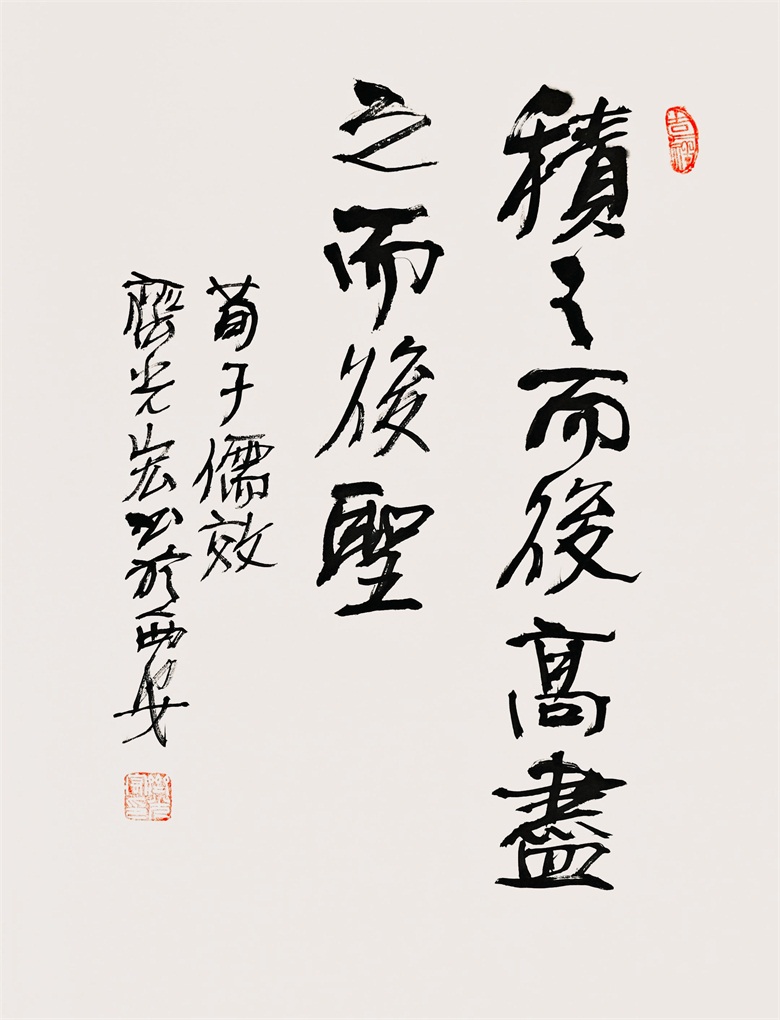 吉祥
積之而後高盡
之而後聖
荀子儒效
光宏书於西安